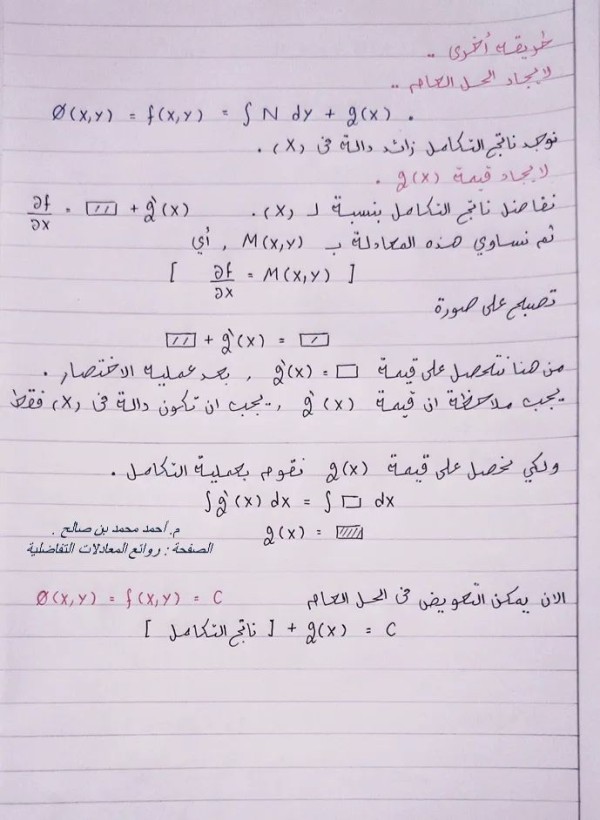 طريقه أخرى ..
لايجاد الحل العام ..
Ø(x,y) = f(x,y) = ∫ N dy + g(x) .
نوجد ناتج التكامل زائد دالة في (x) .
لايجاد قيمة g(x) .
نفاضل ناتج التكامل بنسبة لـ (x) . ∂f/∂x = ▭ + g`(x)
ثم نساوي هذه المعادلة بـ M(x,y) , أي
[ ∂f/∂x = M(x,y) ]
تصبح على صورة
▭ + g`(x) = ▭
من هنا نتحصل على قيمة g`(x) = □ , بعد عملية الاختصار .
يجب ملاحظة ان قيمة g`(x) , يجب ان تكون دالة في (x) فقط
ولكي نحصل على قيمة g(x) نقوم بعملية التكامل .
∫ g`(x) dx = ∫ □ dx
g(x) = ▨
م. أحمد محمد بن صالح .
الصفحة : روائع المعادلات التفاضلية
الان يمكن التعويض في الحل العام Ø(x,y) = f(x,y) = C
[ ناتج التكامل ] + g(x) = C